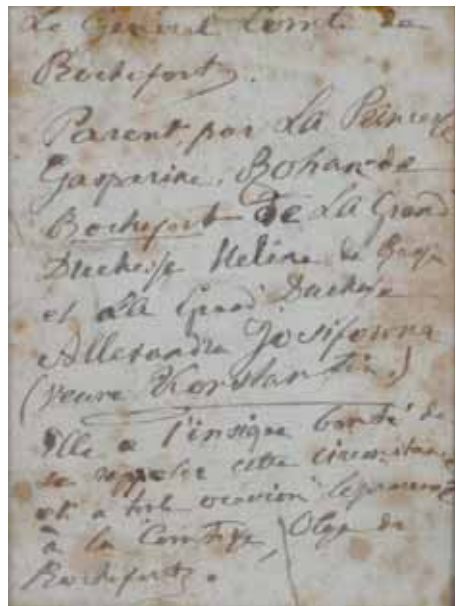 Le General Comte de
Rochefort.
Parent, par La Princesse
Gasparine, Rohan de
Rochefort de La Grand
Duchesse Helène de
et La Grand Duchesse
Allexandra Josifowna
(veuve Konstantin)
Elle a l'insigne bonté de
se rappeler cette circonstance
et a toute occasion
à la Comtesse Olga de
Rochefort.